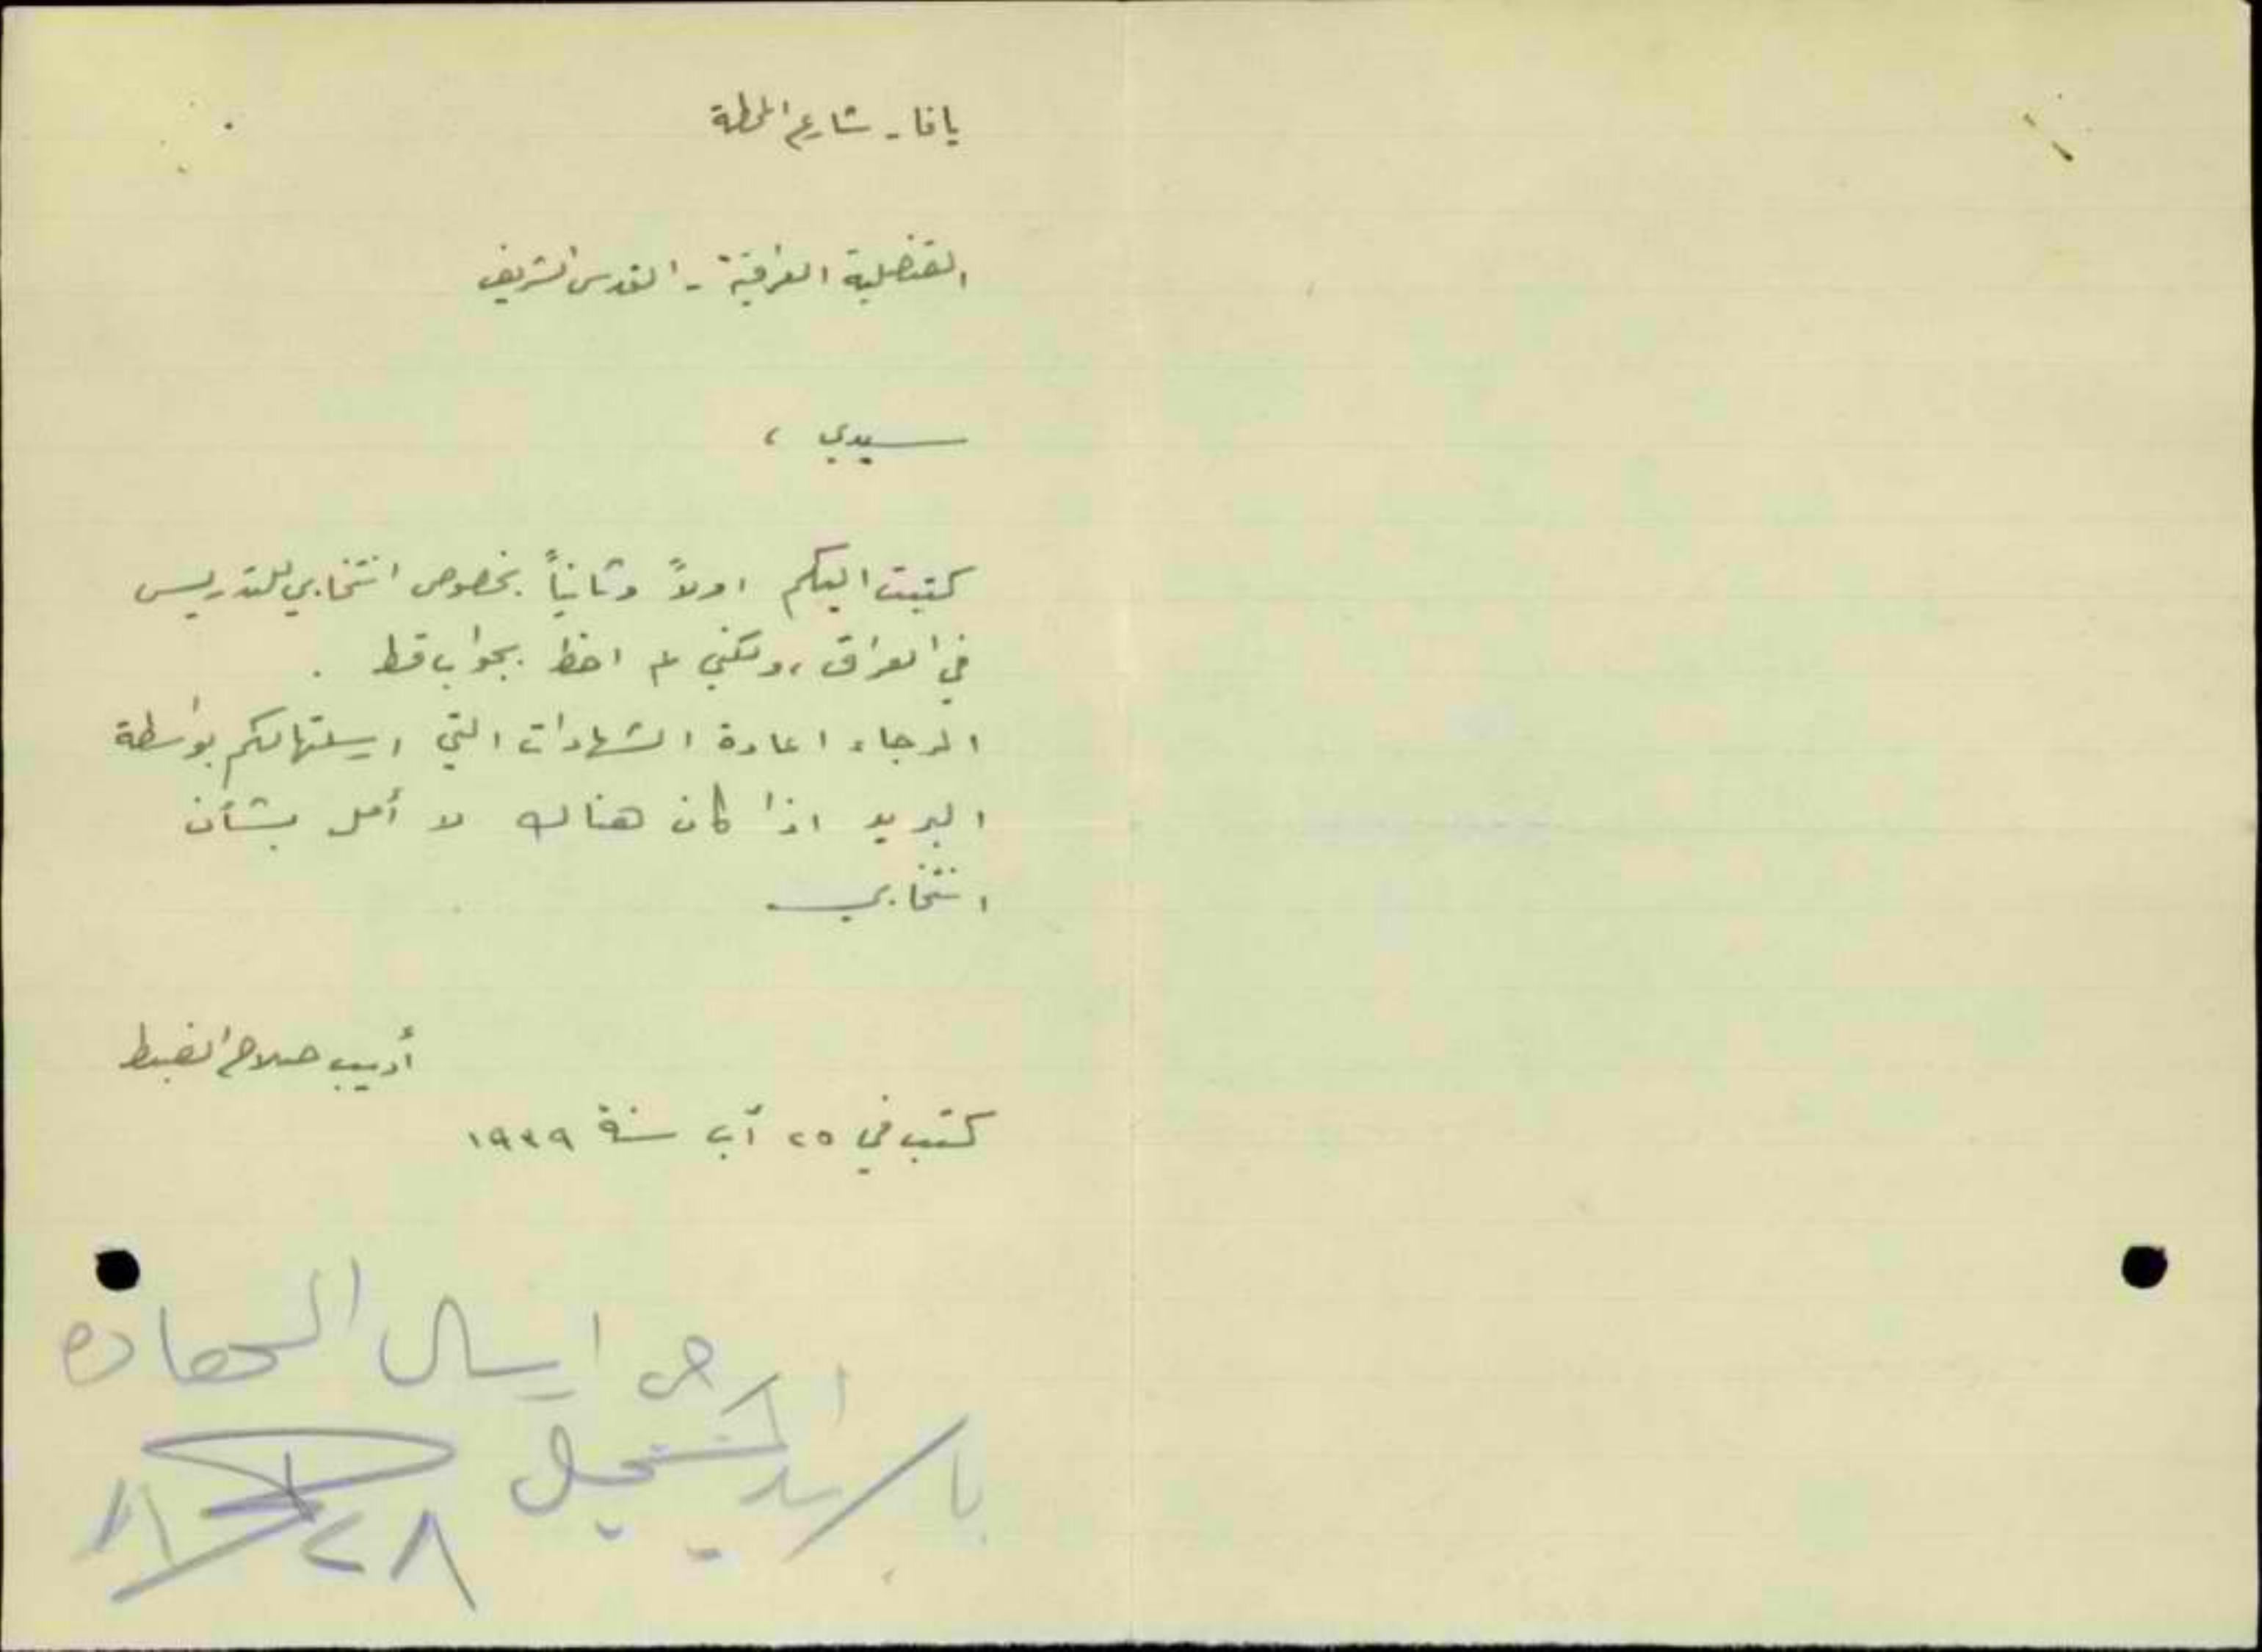 يافا - شارع المحطة
القنصلية العراقية - القدس الشريف
سيدي ،
كتبت اليكم اولاً وثانياً بخصوص انتخابي للتدريس
في العراق، ولكني لم احظ بجواب قط .
الرجاء اعادة الشهادات التي ارسلتها لكم بواسطة
البريد اذا كان هناك لا أمل بشأن
انتخابي .
أديب صلاح الضبط
كتب في ٢٥ آب سنة ١٩٣٩
ارجى ارسال الشهادة
بالبريد المسجل
٢٨/٨